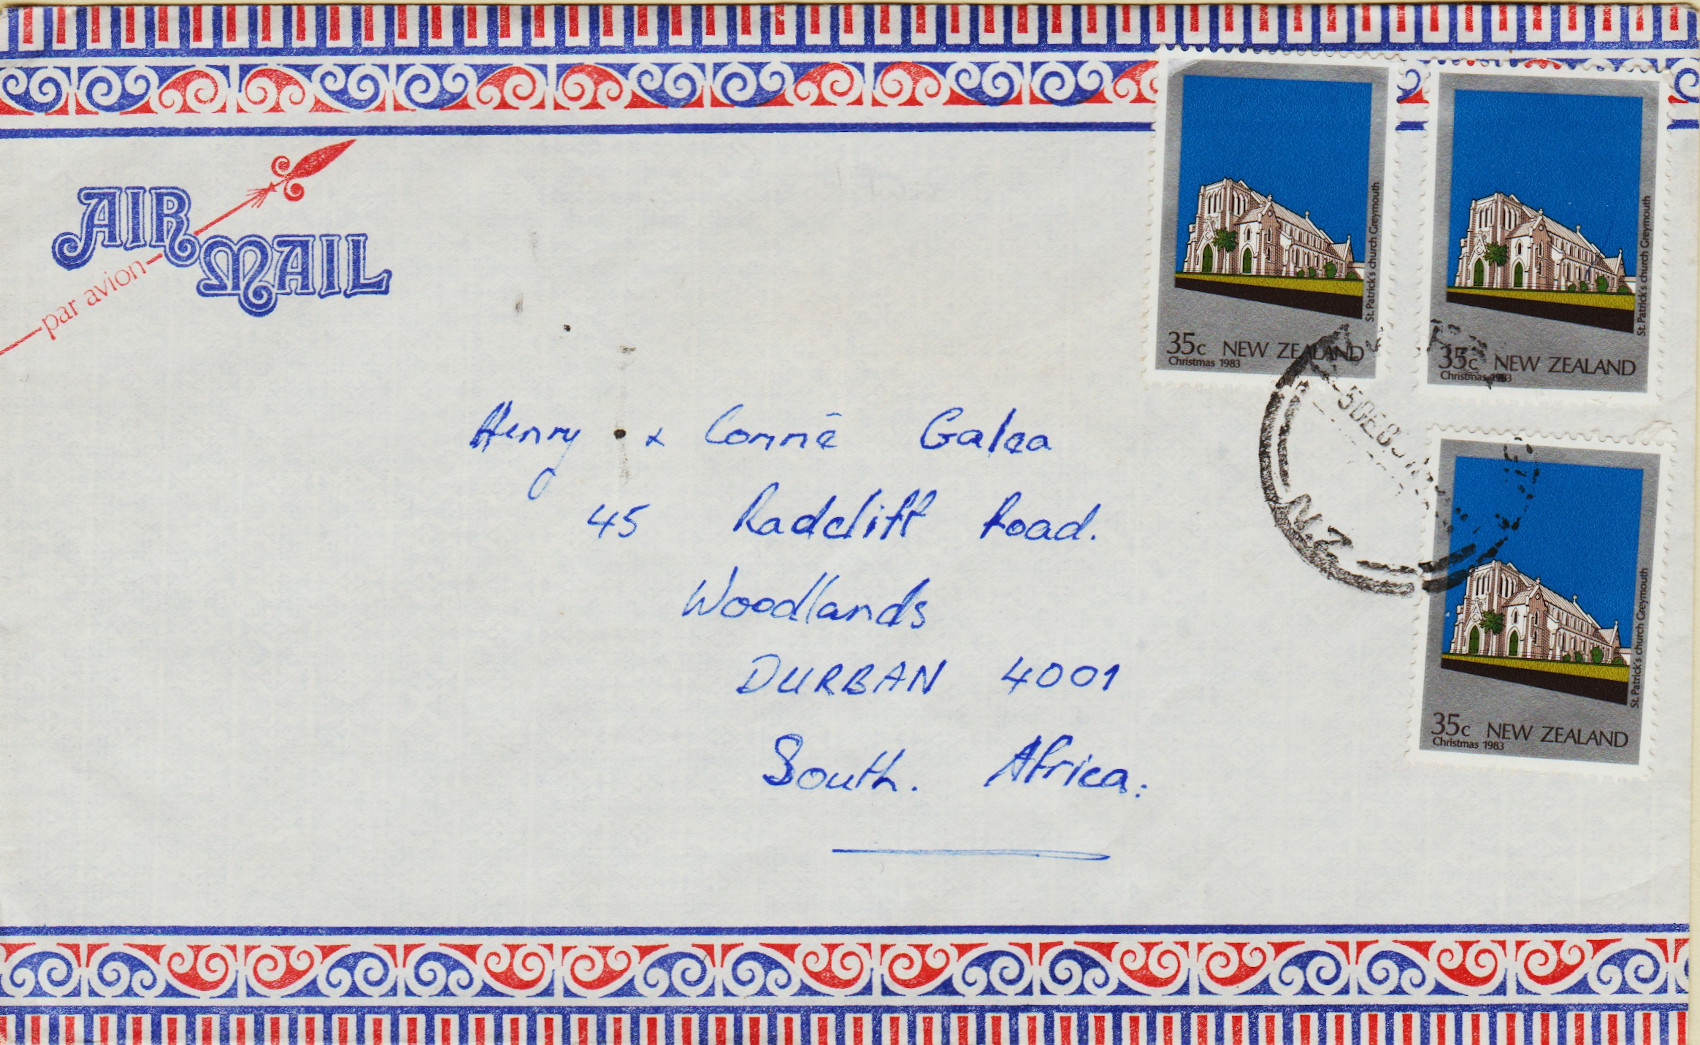 AIR
MAIL
par avion
St. Patrick's church Greymouth
35c NEW ZEALAND
Christmas 1983
St. Patrick's church Greymouth
35c NEW ZEALAND
Christmas 1983
5DE8
N.Z.
Henry & Connie Galea
45 Radcliff Road.
Woodlands
DURBAN 4001
South. Africa.
St. Patrick's church Greymouth
35c NEW ZEALAND
Christmas 1983